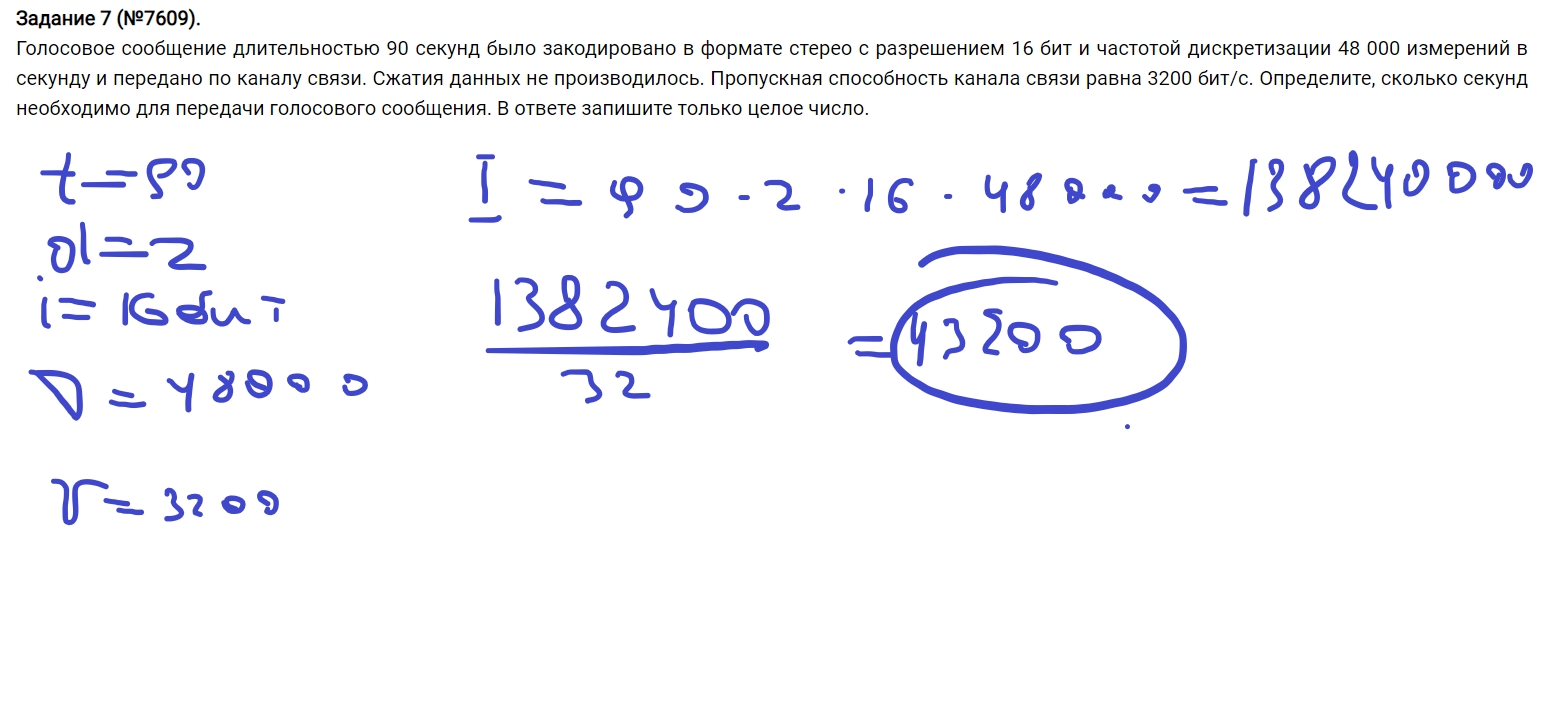 Задание 7 (№7609).
Голосовое сообщение длительностью 90 секунд было закодировано в формате стерео с разрешением 16 бит и частотой дискретизации 48 000 измерений в
секунду и передано по каналу связи. Сжатия данных не производилось. Пропускная способность канала связи равна 3200 бит/с. Определите, сколько секунд
необходимо для передачи голосового сообщения. В ответе запишите только целое число.
t = 90
I = 90 - 2 · 16 - 48000 = 138240000
d = 2
i = 16 бит
1382400
= 43200
32
D = 48000
V = 3200